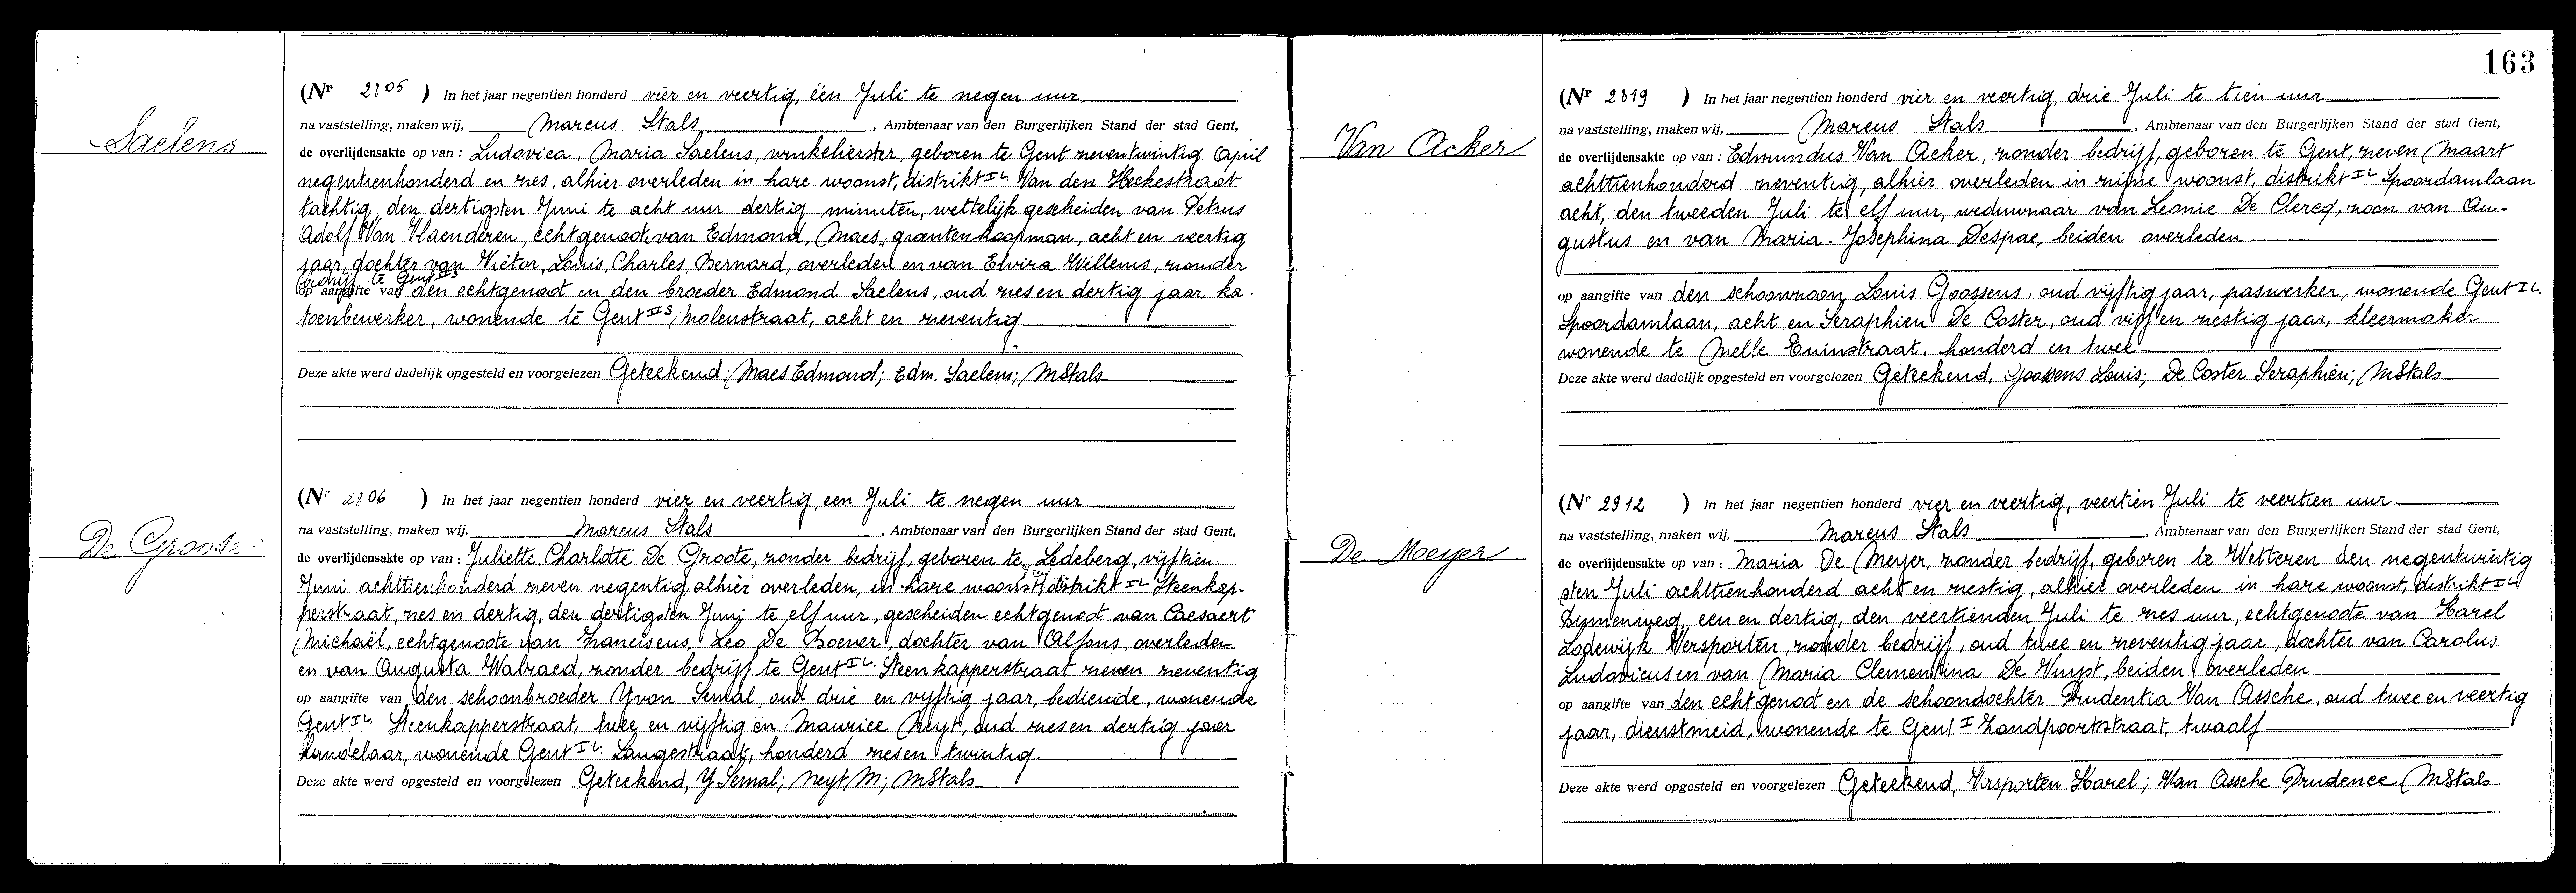 Saelens
(Nr 2805 ) In het jaar negentien honderd vier en veertig, één Juli te negen uur
na vaststelling, maken wij, Marcus Stals, Ambtenaar van den Burgerlijken Stand der stad Gent,
de overlijdensakte op van : Ludovica, Maria Saelens, winkelierster, geboren te Gent zeven twintig April
negentienhonderd en zes, alhier overleden in hare woonst, distrikt IL Van den Heckestraat
tachtig, den dertigsten Juni te acht uur dertig minuten, wettelijk gescheiden van Petrus
Adolf Van Vlaenderen, echtgenoot van Edmond, Maes, groentenkoopman, acht en veertig
jaar, dochter van Victor, Louis, Charles, Bernard, overleden en van Elvira Willems, zonder
bedrijf te Gent IIS
op aangifte van den echtgenoot en den broeder Edmond Saelens, oud zes en dertig jaar, ka-
toenbewerker, wonende te Gent IIS Molenstraat, acht en zeventig
Deze akte werd dadelijk opgesteld en voorgelezen Geteekend; Maes Edmond; Edm. Saelens; MStals
De Groote
(Nr 2806 ) In het jaar negentien honderd vier en veertig, een Juli te negen uur
na vaststelling, maken wij, Marcus Stals, Ambtenaar van den Burgerlijken Stand der stad Gent,
de overlijdensakte op van : Juliette, Charlotte De Groote, zonder bedrijf, geboren te Ledeberg, vijftien
Juni achttienhonderd zeven negentig, alhier overleden, in hare woonst, distrikt IL Steenkap-
perstraat, zes en dertig, den dertigsten Juni te elf uur, gescheiden echtgenoot van Caesaert
Michaël, echtgenoote van Franciscus, Leo De Boever, dochter van Alfons, overleden
en van Augusta Walraed, zonder bedrijf te Gent IL. Steenkapperstraat zeven zeventig
op aangifte van den schoonbroeder Yvon Semal, oud drie en vijftig jaar, bediende, wonende
Gent IL. Steenkapperstraat, twee en vijftig en Maurice Neyt, oud zes en dertig jaar
handelaar, wonende Gent IL. Langestraat, honderd zes en twintig.
Deze akte werd opgesteld en voorgelezen Geteekend, Y Semal; Neyt M; MStals
163
Van Acker
(Nr 2819 ) In het jaar negentien honderd vier en veertig, drie Juli te tien uur
na vaststelling, maken wij, Marcus Stals, Ambtenaar van den Burgerlijken Stand der stad Gent,
de overlijdensakte op van : Edmundus Van Acker, zonder bedrijf, geboren te Gent, zeven Maart
achttienhonderd zeventig, alhier overleden in zijne woonst, distrikt IL Spoordamlaan
acht, den tweeden Juli te elf uur, weduwnaar van Leonie De Clercq, zoon van Au-
gustus en van Maria-Josephina Despae, beiden overleden
op aangifte van den schoonzoon Louis Goossens, oud vijftig jaar, paswerker, wonende Gent IL.
Spoordamlaan, acht en Seraphien De Coster, oud vijf en zestig jaar, kleermaker
wonende te Melle Tuinstraat, honderd en twee
Deze akte werd dadelijk opgesteld en voorgelezen Geteekend, Goossens Louis; De Coster Seraphien; MStals
De Meyer
(Nr 2912 ) In het jaar negentien honderd vier en veertig, veertien Juli te veertien uur.
na vaststelling, maken wij, Marcus Stals, Ambtenaar van den Burgerlijken Stand der stad Gent,
de overlijdensakte op van : Maria De Meyer, zonder bedrijf, geboren te Wetteren den negentwintig
sten Juli achttienhonderd acht en zestig, alhier overleden in hare woonst, distrikt IL
een en dertig, den veertienden Juli te zes uur, echtgenoote van Karel
Lodewijk Versporten, zonder bedrijf, oud twee en zeventig jaar, dochter van Carolus
Ludovicus en van Maria Clementina De Vuyst, beiden overleden
op aangifte van den echtgenoot en de schoondochter Prudentia Van Assche, oud twee en veertig
jaar, dienstmeid, wonende te Gent I Zandpoortstraat, twaalf
Deze akte werd opgesteld en voorgelezen Geteekend, Versporten Karel; Van Assche Prudence MStals